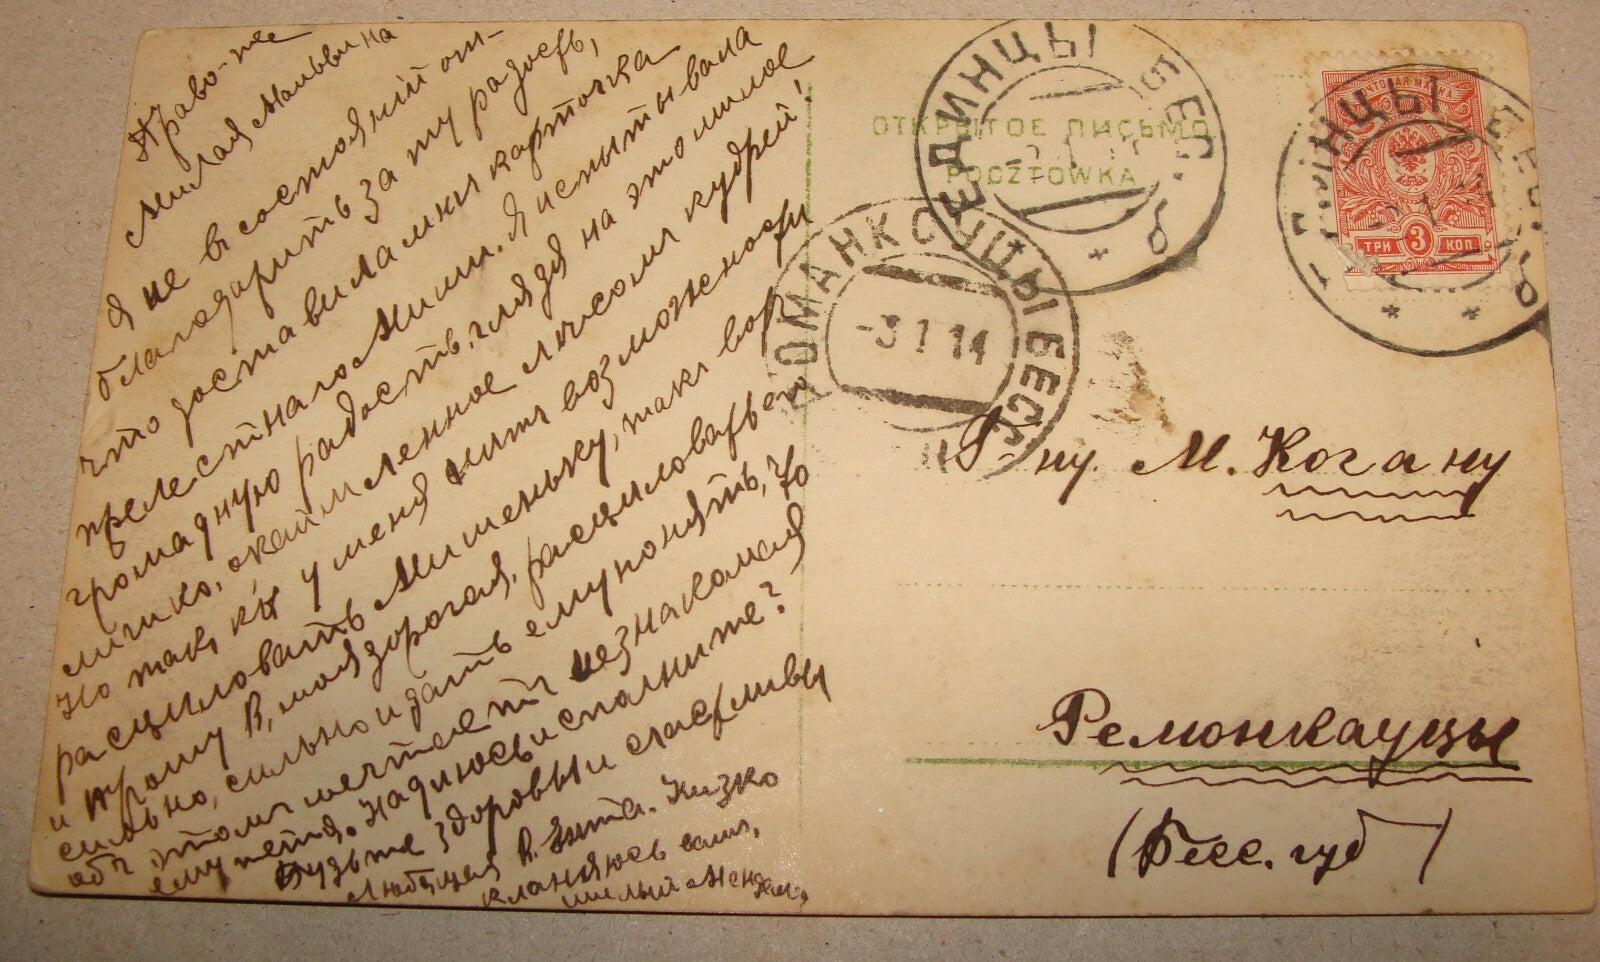 Милая Мальвина
я не в состояний от-
благодарить за ту радость,
что доставила мни карточка
прелестнаго Мини. Я испытывала
громадную радость, глядя на это милое
личико, окаймленное лисом кудрей!
Но так, кы у меня нитъ возможности
расциловать Мишеньку, такъ вот
и прошу В, моя дорогая, расциловать ег
сильно, сильно и дать ему понять, что
объ этомъ мечтаетъ незнакомая
ему тетя. Надиюсь исполните?
Будьте здоровы и счастливы
Любящая В. Зита. Низко
кланяюсь вамъ,
милый
ОТКРЫТОЕ ПИСЬМО
POCZTÓWKA
ЕДИНЦЫ БЕС.
ДОМАНКОУЦЫ БЕСС
-3 1 14
ПОЧТОВАЯ МАРКА
ТРИ 3 КОП.
Г-ну. М. Когану
Ремонкауцы
(Бесс. губ)